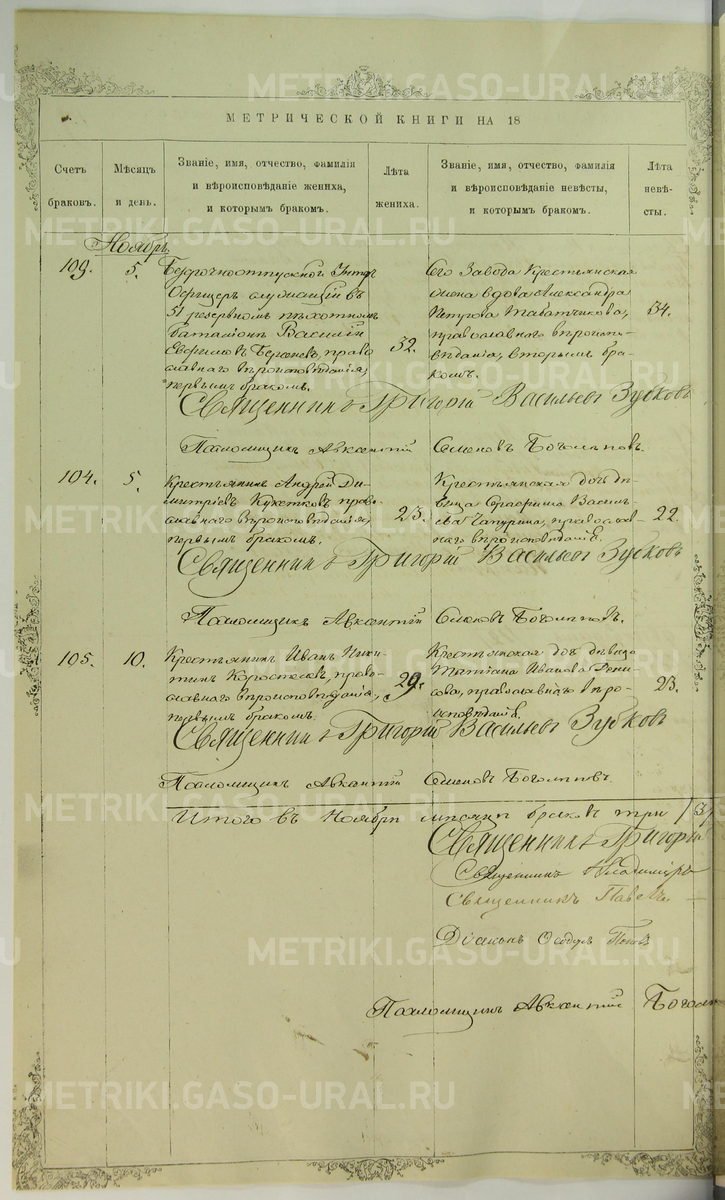 МЕТРИЧЕСКОЙ КНИГИ НА 18
Счетъ браковъ.
Мѣсяцъ и день.
Званіе, имя, отчество, фамилія
и вѣроисповѣданіе жениха,
и которымъ бракомъ.
Лѣта жениха.
Званіе, имя, отчество, фамилія
и вѣроисповѣданіе невѣсты,
и которымъ бракомъ.
Лѣта невѣсты.
Ноябрь.
103.
5.
Безсрочноотпускной Унтеръ
Офицеръ служащій въ
51 резервномъ пѣхотномъ
баталіонѣ Василій
Евфимовъ право
славнаго вѣроисповѣданія,
первымъ бракомъ.
32.
Сего Завода Крестьянская
жена вдова Александра
Петрова Табатчикова,
православнаго вѣроиспо-
вѣданія, вторымъ бра-
комъ.
34.
Священникъ Григорій Васильевъ Зубковъ
Псаломщикъ Авксентій Семеновъ
104.
5.
Крестьянинъ Андрей Ди-
митріевъ право-
славнаго вѣроисповѣданія,
первымъ бракомъ.
23.
Крестьянская дочь дѣ-
вица Серафима Василь-
ева Чапурина, православ-
наго вѣроисповѣданія.
22.
Священникъ Григорій Васильевъ Зубковъ
Псаломщикъ Авксентій Семеновъ
105.
10.
Крестьянинъ Иванъ Ники-
тинъ Коростелевъ, право-
славнаго вѣроисповѣданія,
первымъ бракомъ.
29.
Крестьянская дочь дѣвица
Татіана Иванова
православнаго вѣро-
исповѣданія.
23.
Священникъ Григорій Васильевъ Зубковъ
Псаломщикъ Авксентій Семеновъ
Итого въ Ноябрѣ мѣсяцѣ браковъ три /3/
Священникъ Григорій
Священникъ Владимиръ
Священникъ Павелъ
Діаконъ Ѳеодоръ Поповъ
Псаломщикъ Авксентій
METRIKI.GASO-URAL.RU